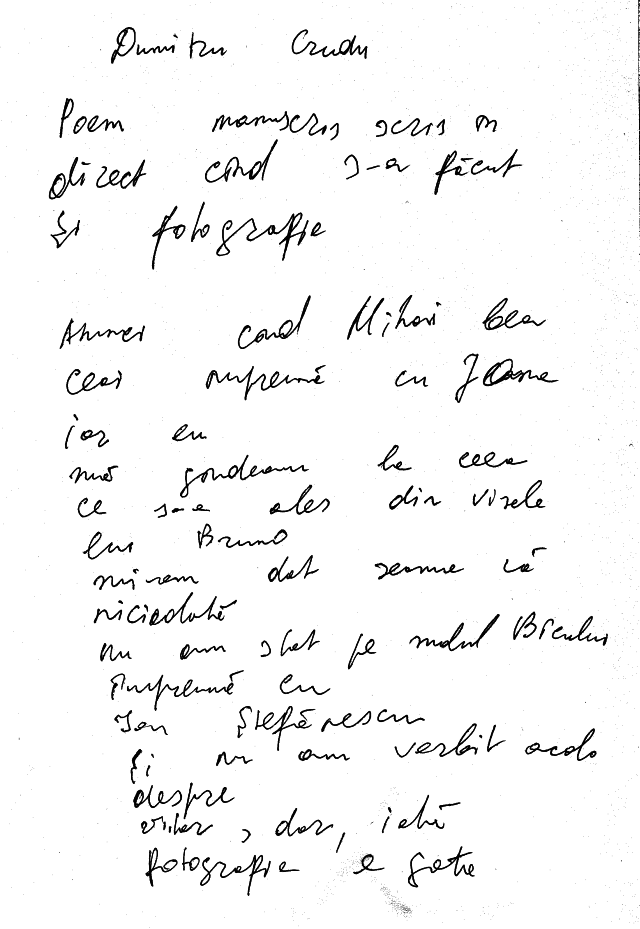 Dumitru Crudu
Poem manuscris scris în
direct când s-a făcut
și fotografie
Atunci când Mihai bea
ceai împreună cu Ioana
iar eu
mă gândeam la ceea
ce s-a ales din visele
lui Bruno
mi-am dat seama că
niciodată
nu am stat pe malul Bîcului
împreună cu
Ion Ștefănescu
și nu am vorbit acolo
despre
, dar, iată
fotografia e gata